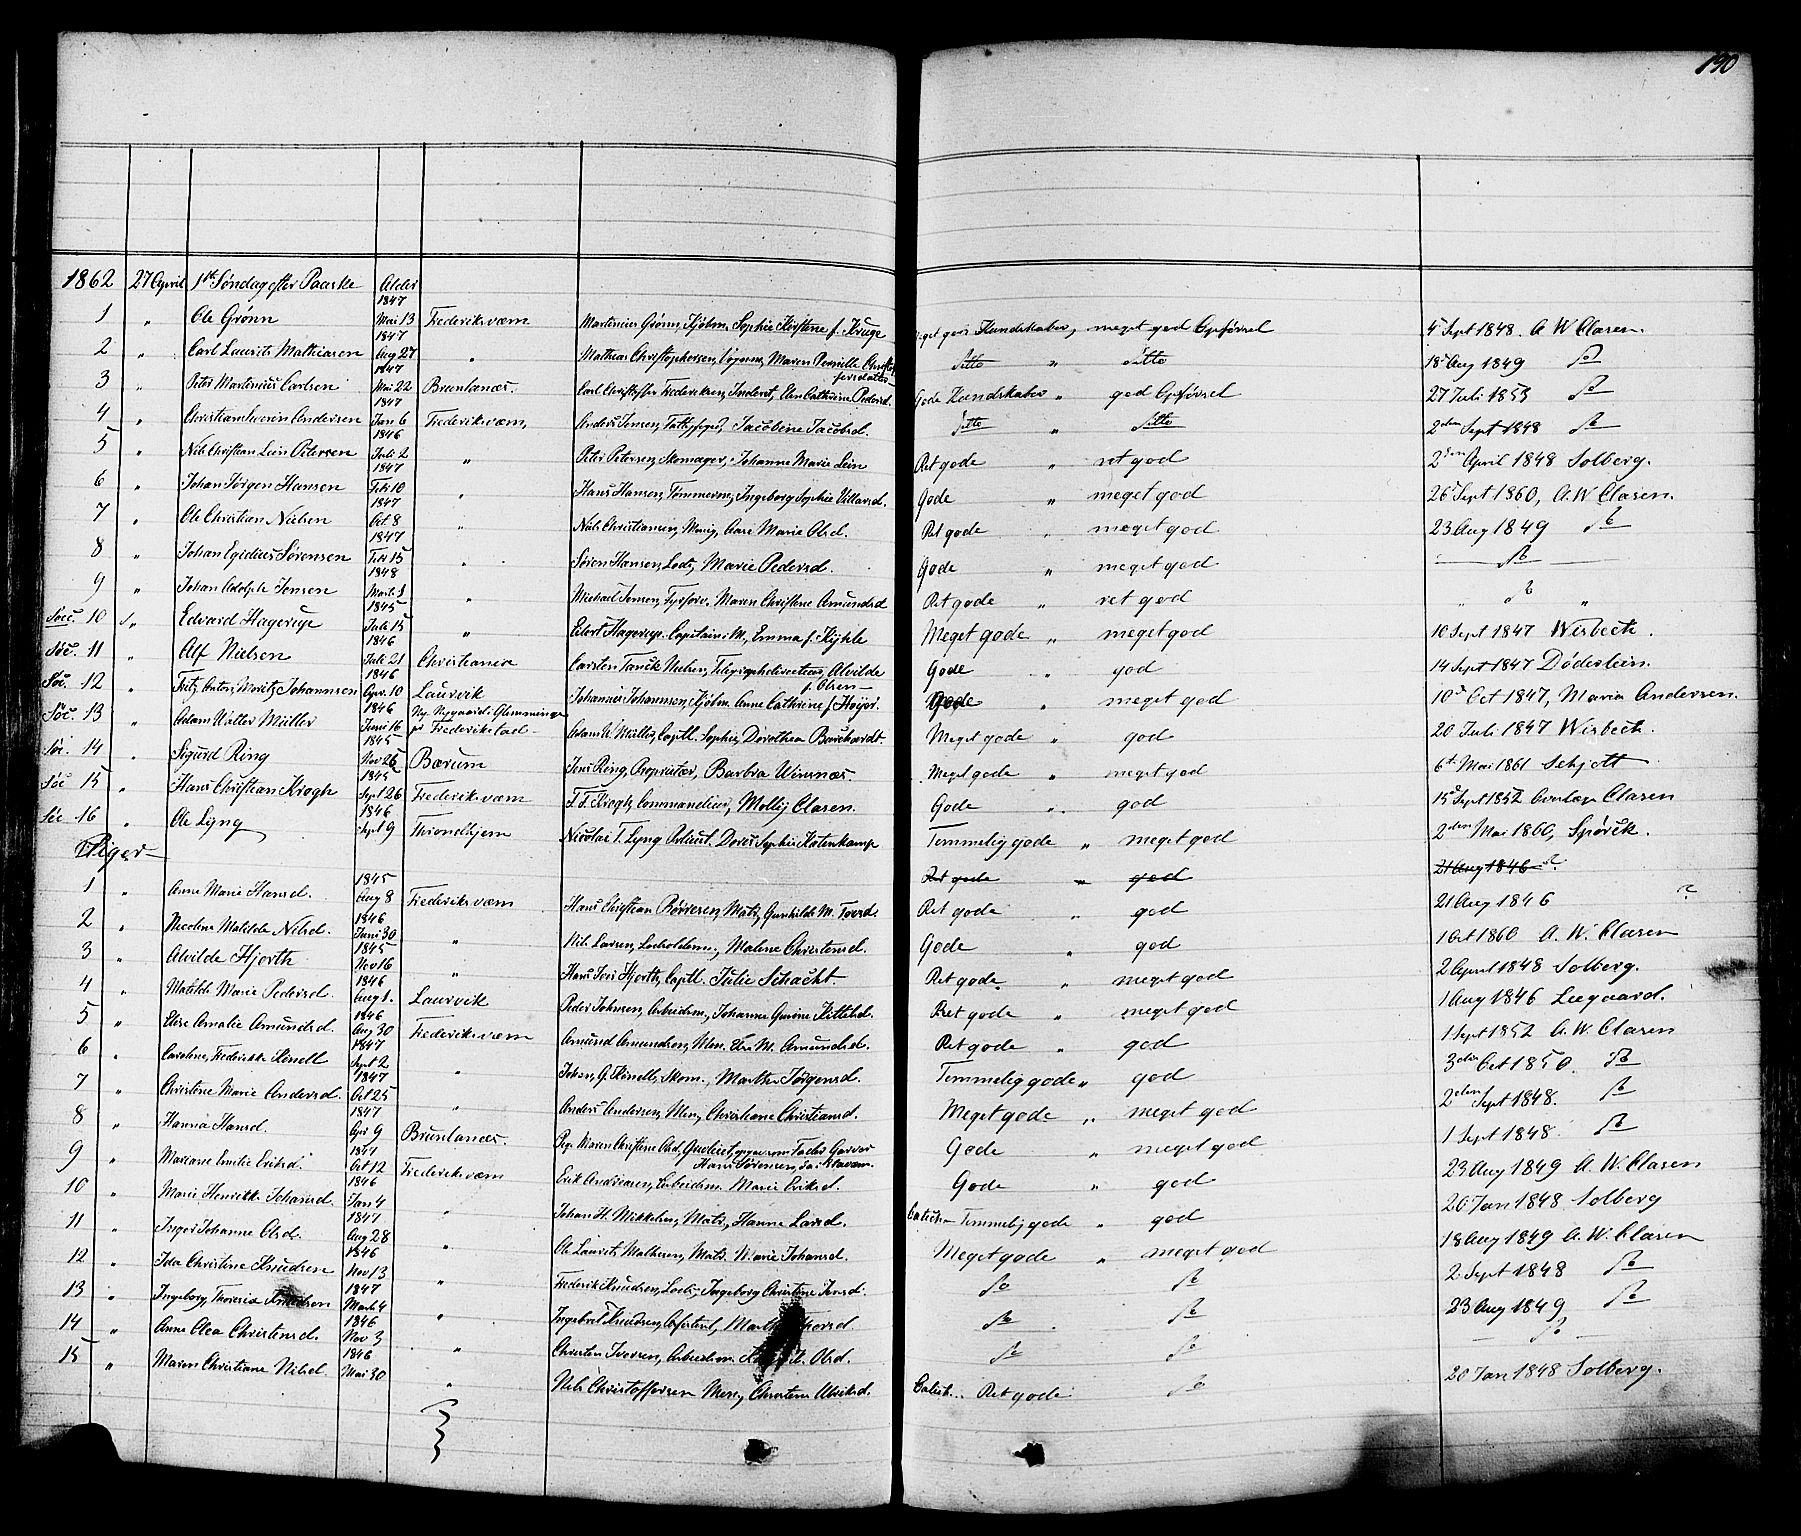 190
1862 27 April 1ste Søndag efter Paaske Alder
1847
1 " Ole Grønn Mai 13 Frederiksværn Martinius Grønn, Kjøbm. Sophie Kirstine f. Kruge Meget gode Kundskaber, meget god Opførsel 4 Sept 1848. A W Clasen.
1847
2 " Carl Laurits Mathiasen Aug 27 " Mathias Christophersen, Maren Pernille Christophersdatter Ditto " Ditto 18 Aug 1849 do
1847
3 " Peter Martinius Carlsen Mai 22 Brunlanæs. Carl Christoffer Frederiksen, Inderst, Elen Cathrine Pedersd. Gode Kundskaber " god Opførsel 27 Juli 1853 do
1847
4 " Christian Severin Andersen Jan 6 Frederiksværn, Anders Jensen, Jacobine Jacobsd. Ditto " Ditto 2den Sept 1848 do
1846
5 " Nils Christian Lein Petersen Juli 2 " Peter Petersen, Skomager, Johanne Marie Lein Ret gode " ret god 2den April 1848 Solberg.
1847
6 " Johan Jørgen Hansen Feb 10 " Hans Hansen, Tømmerm, Ingeborg Sophie Villarsd. Gode " meget god 26 Sept 1860, A. W Clasen.
1847
7 " Ole Christian Nielsen Oct 8 " Nils Christiansen, Anne Marie Olsd. Ret gode " meget god 23 Aug 1849 do
1847
8 " Johan Egidius Sørensen Feb 15 " Søren Hansen, Lods, Marie Pedersd. Gode " meget god do
1848
9 " Johan Adolph Jensen Marts 1 " Michael Jensen, Fyrforv. Maren Christine Amundsd Ret gode " ret god " do "
1845
Søc. 10 " Edvard Hagerup Juli 15 " Edvard Hagerup. Capitain M, Emma f. Kyhle Meget gode " meget god 10 Sept 1847 Wisbech.
1846
Søc. 11 " Alf Nielsen Juli 21 Christiania Carsten Tanck Nielsen, Telegraphdirecteur, Alvilde f. Olsen Gode " god 14 Sept 1847 Döderlein.
1846
Søc. 12 " Fritz Anton Moritz Johannsen Apr. 10 Laurvik Johannes Johannsen, Kjøbm. Anne Cathrine f Høyer. Gode " meget god 10d Oct 1847, Maria Andersen.
1846
Søc. 13 " Adam Walter Müller Juni 16 Ny Nygaard i Glemminge pr Frederikstad Adam W Müller, Captl. Sophie Dorothea Borchardt. Meget gode " god 20 Juli 1847 Wisbech.
1845
Søc. 14 " Sigurd Ring Nov 26 Bærum Jens Ring, Proprietær, Barbra Winsnæs. Meget gode " meget god 6te Mai 1861 Schjøtt
1845
Søc 15 " Hans Christian Krogh Sept 26 Frederiksværn F. F. Krogh, Commandeur, Molly Clasen. Gode " god 15 Sept 1852 Clasen
1846
Søc 16 " Ole Lyng Sept 9 Throndhjem Nicolai T. Lyng Dorus Sophie Kotenkamp Temmelig gode " meget god 2den Mai 1860, Spørck.
Piger
Ret gode " god 21 Aug 1846
1845
1 " Anne Marie Hansd. Aug 8 Frederiksværn Hans Christian Börresen, Matr, Gunhilde M. Torsd. Ret gode " god 21 Aug 1846 ?
1846
2 " Nicoline Matilde Nilsd. Juni 30 " Nils Larsen, Malene Christensd. Gode " god 1 Oct 1860 A. W. Clasen
1845
3 " Alvilde Hjorth Nov 16 " Hans Jens Hjorth, Captl. Julie Schacht. Ret gode " meget god 2 April 1848 Solberg.
1846
4 " Matilde Marie Pedersd. Aug 1. Laurvik Peder Johnsen, Arbeidsm., Johanne Gurine Kittilsd. Ret gode " meget god 1 Aug 1846 Leegaard.
1846
5 " Elise Amalie Amundsd. Aug 30 Frederiksværn Amund Amundsen, Else M. Amundsd. Ret gode " god 1 Sept 1852 A. W. Clasen
1847
6 " Caroline, Frederikke Kinell Sept 2 " Johan, G. Kinell, Skom., Marthe Jørgensd. Temmelig gode " god 3die Oct 1850. do
1847
7 " Christine Marie Andersd. Oct 25 " Anders Andersen, Christiane Christiansd. Meget gode " meget god 2den Sept 1848. do
1847
8 " Hanna Hansd. Apr 9 Brunlanæs. Pige Maren Christine Olsd. Hans Sørensen, Gode " meget god 1 Sept 1848. do
1847
9 " Mariane Emilie Eriksd. Oct 12 Frederiksværn Erik Andreasen, Arbeidsm. Marie Eriksd. Gode " god 23 Aug 1849 A. W. Clasen
1846
10 " Marie Henrikk. Johansd. Jan 4 " Johan H. Mikkelsen, Matr, Hanne Larsd. Temmelig gode " god 20 Jan 1848 Solberg
1847
11 " Inger Johanne Olsd. Aug 28 " Ole Laurits Mathesen, Matr. Marie Johansd. Meget gode " meget god 18 Aug 1849 A. W. Clasen
1846
12 " Ida Christine Knudsen Nov 13 " Frederik Knudsen, Lods, Ingeborg Christine Jensd. do do 2. Sept 1848 do
1847
13 " Ingeborg, Theresia Knudsen Marts 4 " Ingebret Knudsen, Marthe Thorsd. do do 23 Aug 1849 do
1846
14 " Anne Olea Christensd. Nov 3 " Christen Iversen, Arbeidsm. Olsd. do do do
1846
15 " Maren Christiane Nilsd. Mai 30 " Nils Christoffersen Christine Ulriksd. Ret gode do 20 Jan 1848 Solberg.